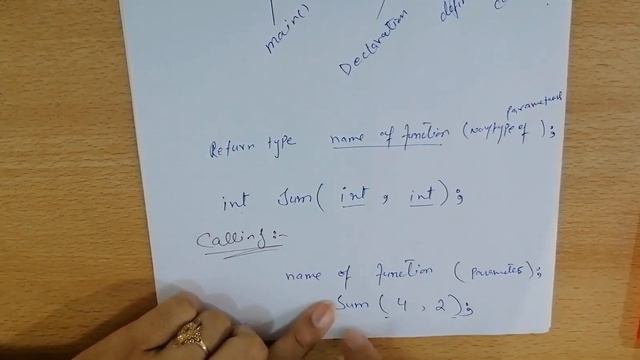 main()
Declaration
parameters
Return type name of function (no/type of );
int Sum( int , int );
Calling:-
name of function (parameter);
Sum ( 4 , 2 );